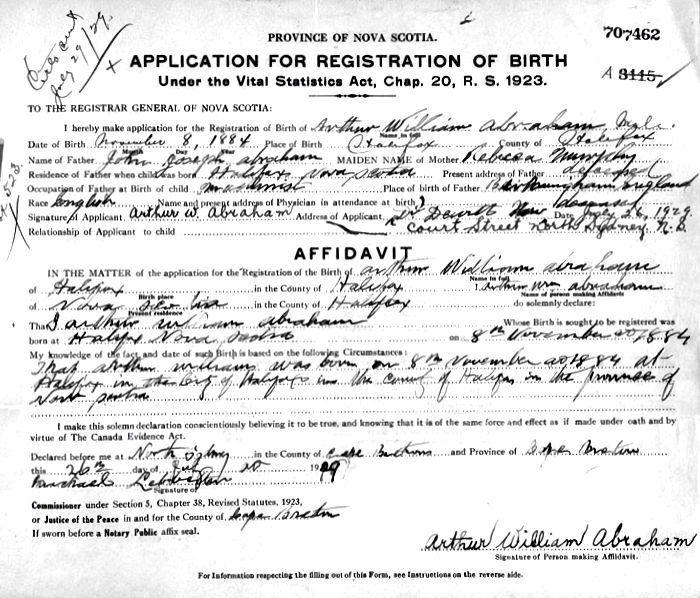 PROVINCE OF NOVA SCOTIA.
707462
Certs cut
July 29/29
APPLICATION FOR REGISTRATION OF BIRTH
A 3115
Under the Vital Statistics Act, Chap. 20, R. S. 1923.
TO THE REGISTRAR GENERAL OF NOVA SCOTIA:
I hereby make application for the Registration of Birth of Arthur William Abraham
Name in full
Date of Birth November 8, 1884 Place of Birth Halifax County of Halifax
Month Day Year
Name of Father John Joseph Abraham MAIDEN NAME of Mother Rebecca Murphy
Name in full
Residence of Father when child was born Halifax Nova Scotia Present address of Father deceased
Occupation of Father at Birth of child Machinist Place of birth of Father Birmingham England
Race English Name and present address of Physician in attendance at birth Dr Dewitt Now Deceased
Signature of Applicant Arthur W. Abraham Address of Applicant Court Street North Sydney N.S Date July 26, 1929
Relationship of Applicant to child
AFFIDAVIT
IN THE MATTER of the application for the Registration of the Birth of Arthur William Abraham
of Halifax in the County of Halifax I Arthur Wm Abraham
Birth place
Name in full
Name of person making Affidavits
of Nova Scotia in the County of Halifax do solemnly declare:
Present residence
That I Arthur William Abraham Whose Birth is sought to be registered was
born at Halifax Nova Scotia on 8th November AD 1884
My knowledge of the fact and date of such Birth is based on the following Circumstances:
That Arthur William was born on 8th November AD 1884 at
Halifax in the City of Halifax in the County of Halifax in the province of
Nova Scotia
I make this solemn declaration conscientiously believing it to be true, and knowing that it is of the same force and effect as if made under oath and by
virtue of The Canada Evidence Act.
Declared before me at North Sydney in the County of Cape Breton and Province of Cape Breton
this 26th day of July 1929
Michael
Signature of
Commissioner under Section 5, Chapter 38, Revised Statutes, 1923,
or Justice of the Peace in and for the County of Cape Breton
If sworn before a Notary Public affix seal.
Arthur William Abraham
Signature of Person making Affidavit.
For Information respecting the filling out of this Form, see Instructions on the reverse side.